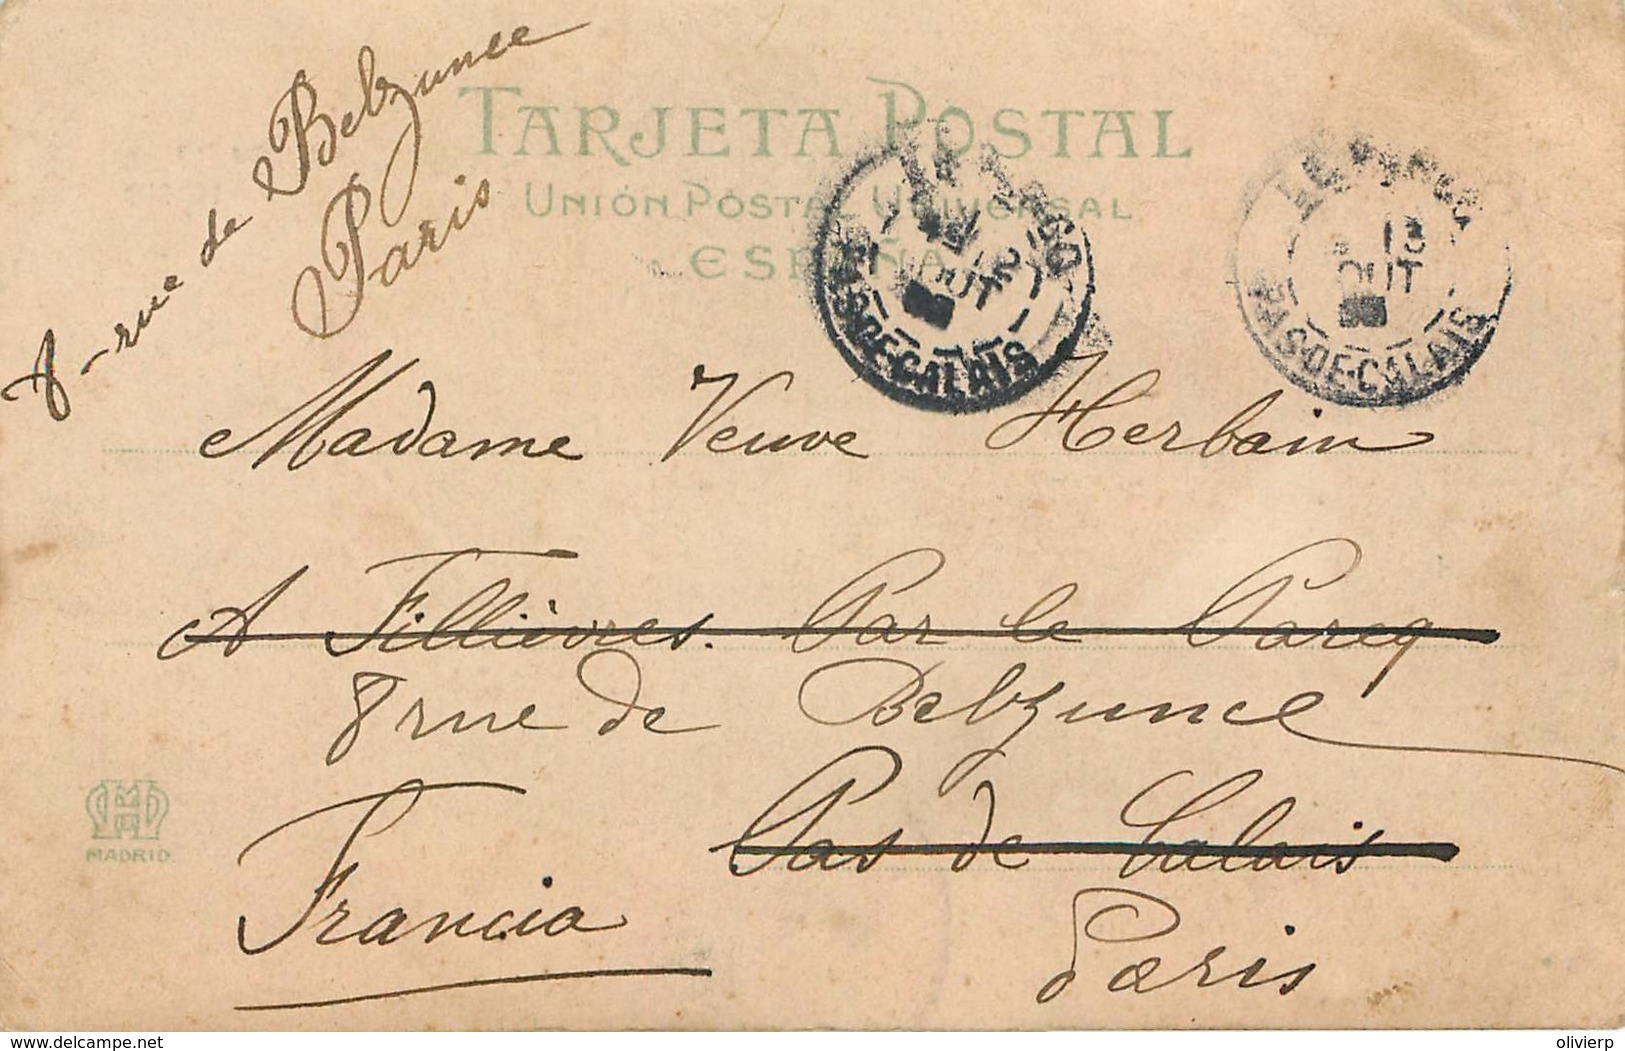 8 - rue de Belzunce
Paris
TARJETA POSTAL
UNIÓN POSTAL UNIVERSAL
ESPAÑA
PAS-DE-CALAIS
12
OUT
LE PARCQ
13
OUT
PAS-DE-CALAIS
Madame Veuve Herbain
A Fillièvres. Par le Parcq
8 rue de Belzunce
Pas de Calais
Francia
Paris
MADRID
delcampe.net
olivierp